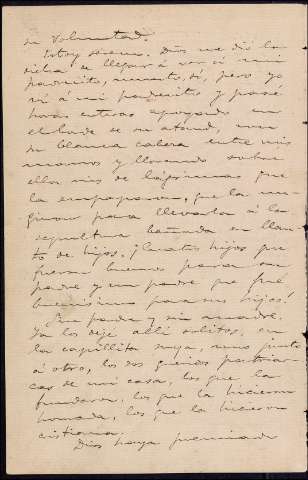 su voluntad.
Estoy sereno. Dios me dió la
dicha de llegar á ver á mi
padrecito, muerto, sí, pero yo
ví á mi padrecito y pasé
horas enteras apoyado en
el borde de su ataud, con
su blanca cabeza entre mis
manos y llorando sobre
ellos ríos de lágrimas que
la empaparon, que la un-
gieron para llevarla á la
sepultura bañada en llan-
to de hijos, ¡cuatro hijos que
fueron buenos para un
padre y un padre que fué
buenísimo para sus hijos!
Sin padre y sin madre.
Ya los dejé allí solitos, en
la capillita suya, uno junto
á otro, los dos queridos patriar-
cas de mi casa, los que la
fundaron, los que la hicieron
honrada, los que la hicieron
cristiana.
Dios haya premiado